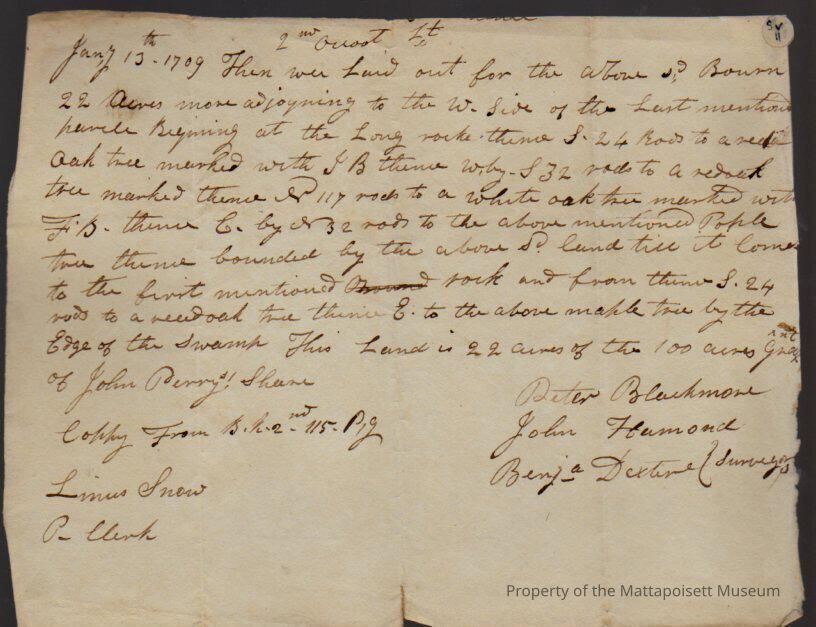 Sv 11
2nd
Jany 13th - 1709 Then wee Laid out for the above sd Bourn
22 Acres more adjoyning to the W. Side of the Last mentioned
parcele Begining at the Long rocke thence S. 24 Rods to a red
Oak tree marked with J B thence W.by-S 32 rods to a redoak
tree marked thence N 117 rods to a white oak tree marked with
F. B. thence E. by N 32 rods to the above mentioned Pople
tree thence bounded by the above Sd. land till it Comes
to the first mentioned rock and from thence S. 24
rods to a reedoak tree thence E. to the above maple tree by the
Edge of the Swamp This Land is 22 acres of the 100 acres
of John Perrys! Share
Peter Blackmore
Coppy From B.k. 2nd - 115 - Pg
John Hamond
Benja Dextere } Surveyors
Linus Snow
P- Clerk
Property of the Mattapoisett Museum